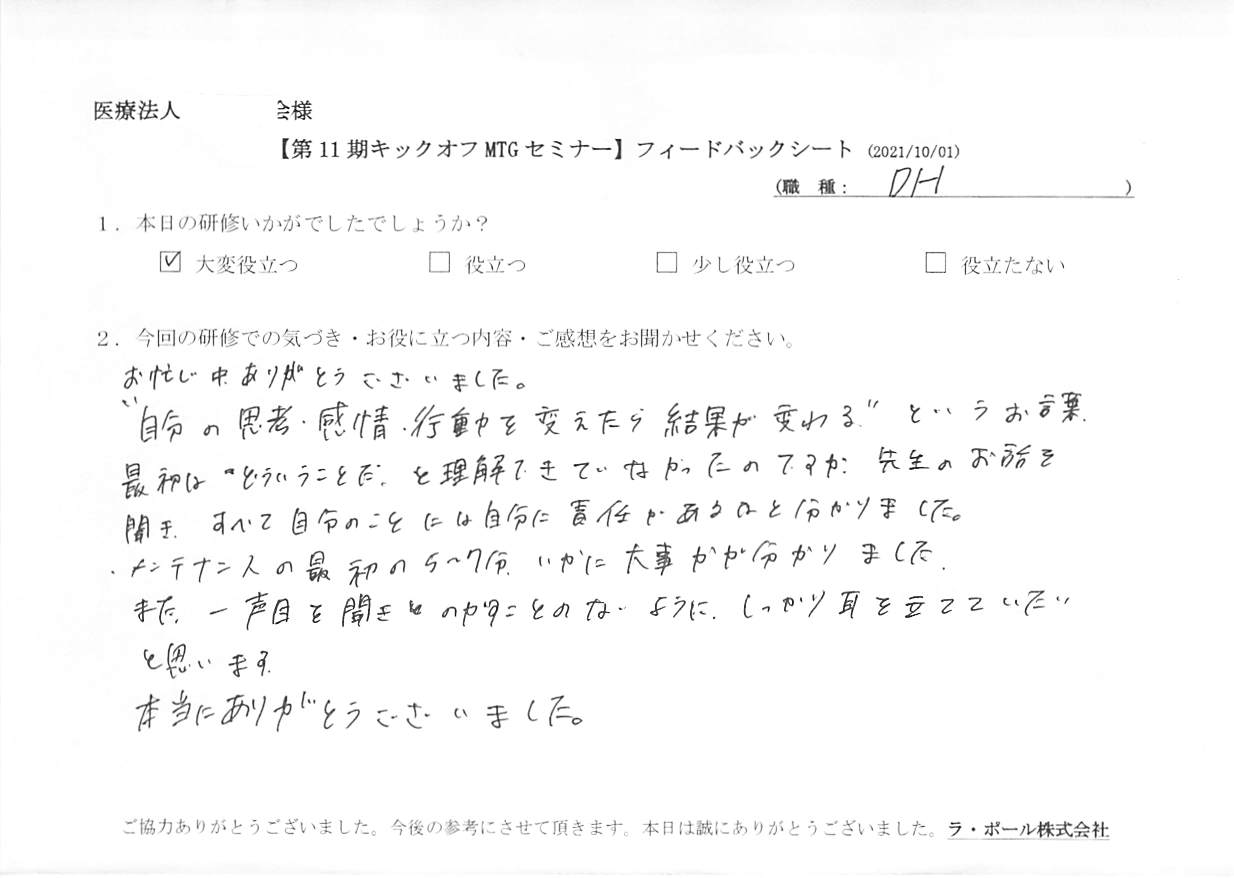 医療法人 会様
【第11期キックオフMTGセミナー】フィードバックシート (2021/10/01)
(職 種: DH )
1. 本日の研修いかがでしたでしょうか？
☑ 大変役立つ □ 役立つ □ 少し役立つ □ 役立たない
2. 今回の研修での気づき・お役に立つ内容・ご感想をお聞かせください。
お忙しい中ありがとうございました。
"自分の思考・感情・行動を変えたら結果が変わる"というお言葉、
最初は"どういうことだ"と理解できていなかったのですが、先生のお話を
聞き、すべて自分のことには自分に責任があるなと分かりました。
・メンテナンスの最初の5〜7分、いかに大事かが分かりました。
また、一声目を聞きのがすことのないように、しっかり耳を立てていたい
と思います。
本当にありがとうございました。
ご協力ありがとうございました。今後の参考にさせて頂きます。本日は誠にありがとうございました。ラ・ポール株式会社